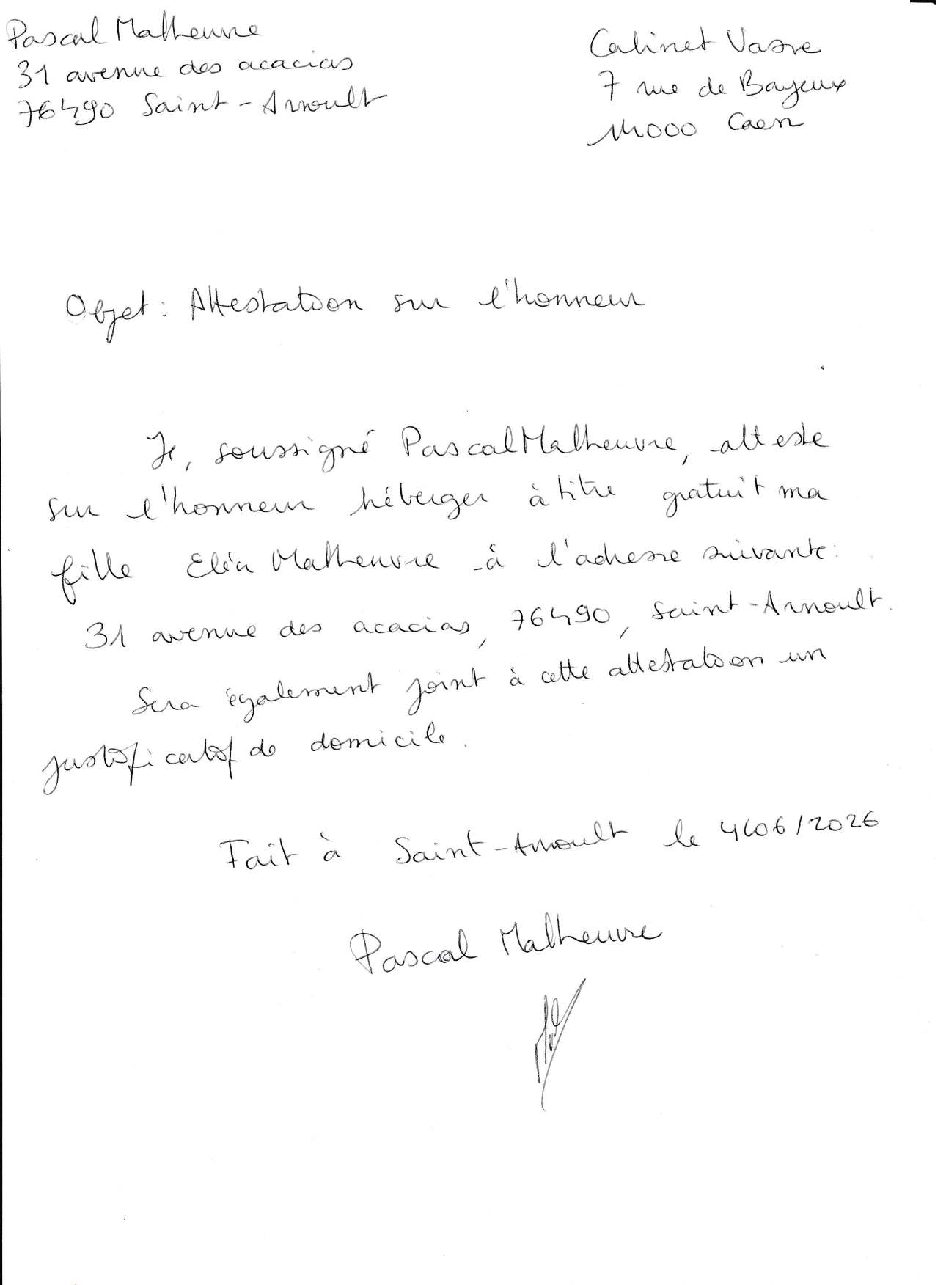 Pascal Malheuvre
31 avenue des acacias
76490 Saint-Arnoult
Cabinet Vasre
7 rue de Bayeux
14000 Caen
Objet : Attestation sur l'honneur
Je, soussigné Pascal Malheuvre, atteste
sur l'honneur héberger à titre gratuit ma
fille Eléa Malheuvre à l'adresse suivante :
31 avenue des acacias, 76490, Saint-Arnoult.
Sera également joint à cette attestation un
justificatif de domicile.
Fait à Saint-Arnoult le 4/06/2026
Pascal Malheuvre